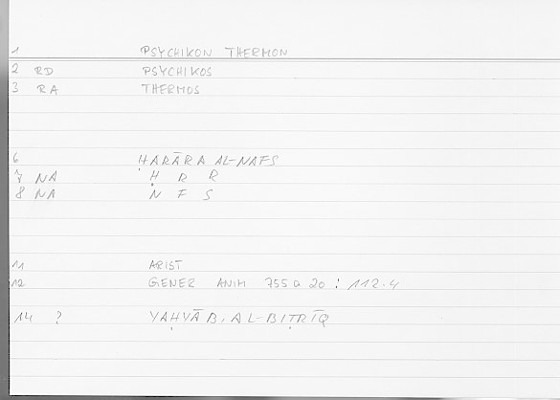 1 PSYCHIKON THERMON
2 RD PSYCHIKOS
3 RA THERMOS
6 ḤARĀRA AL-NAFS
7 NA Ḥ R R
8 NA N F S
11 ARIST
12 GENER ANIM 755 a 20 : 112.4
14 ? YAḤYĀ B. AL-BIṬRĪQ